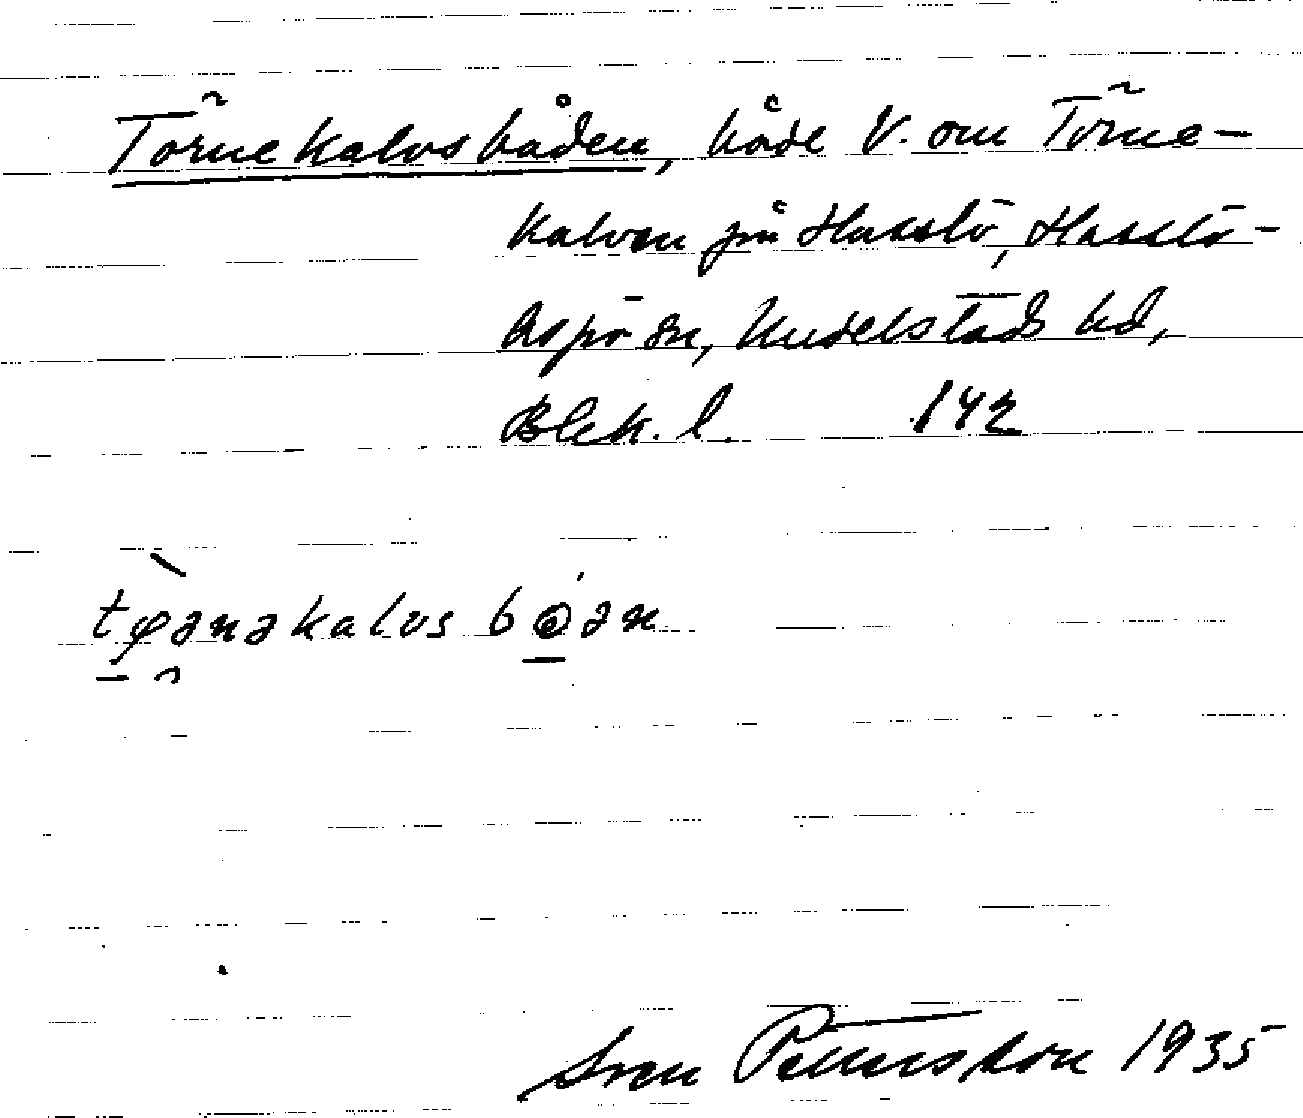 Törnekalvsbåden, både V. om Törne-
kalven på Hasslö, Hasslö-
Aspö sn, Medelstads hd,
Blek. l. 142
tøənəkalvs bo̱ən
Sven Pettersson 1935